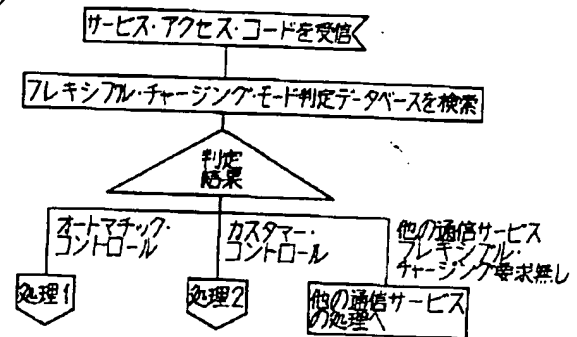 サービス・アクセス・コードを受信
フレキシブル・チャージング・モード判定データベースを検索
判定
結果
オートマチック・
コントロール
カスタマー・
コントロール
他の通信サービス
フレキシブル・
チャージング要求無し
処理1
処理2
他の通信サービス
の処理へ